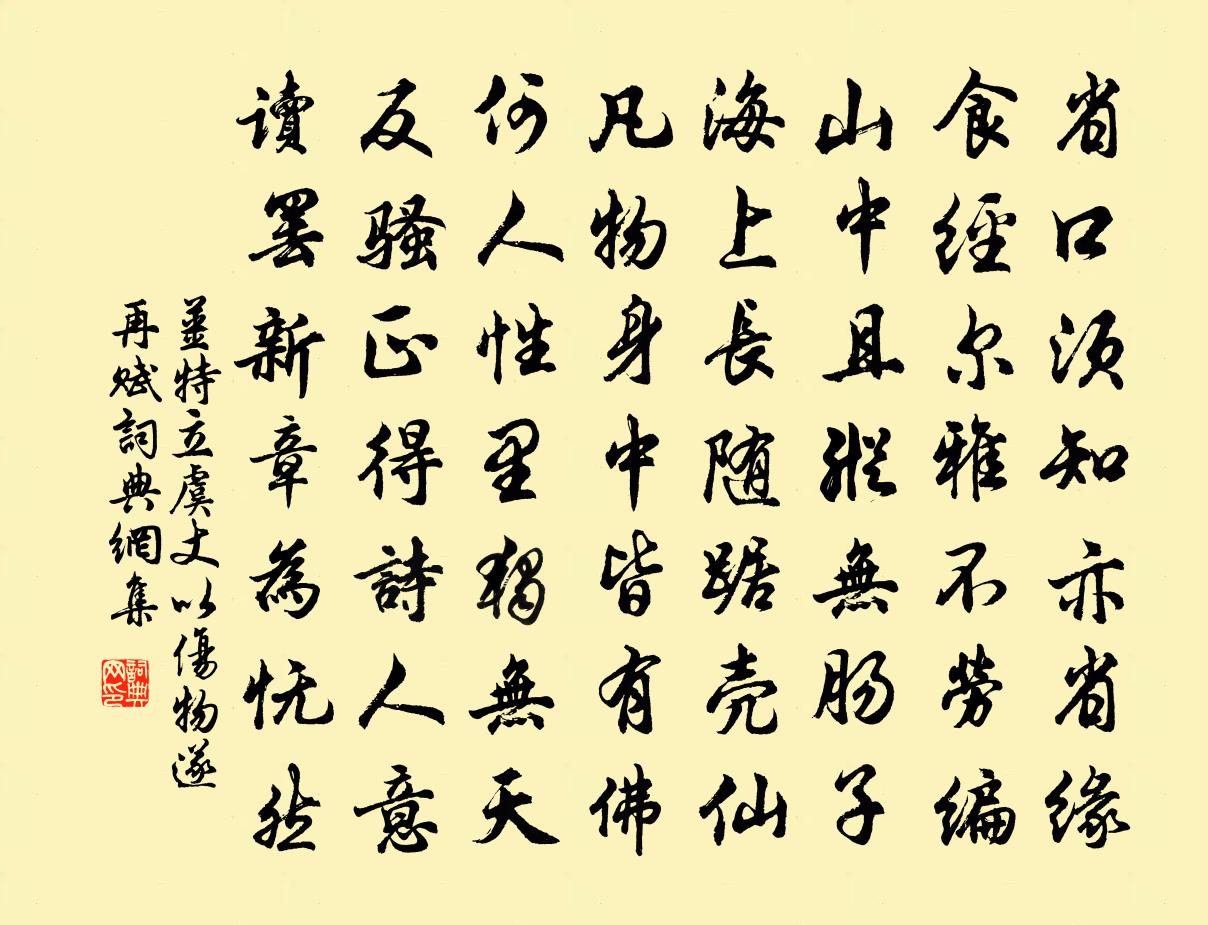 省口須知亦省緣
食經尔雅不勞編
山中且縱無腸子
海上長随踞壳仙
凡物身中皆有佛
何人性里獨無天
反騷正得詩人意
讀罷新章為恍然
姜特立虞丈以傷物遂
再賦詞典網集
詞典网印